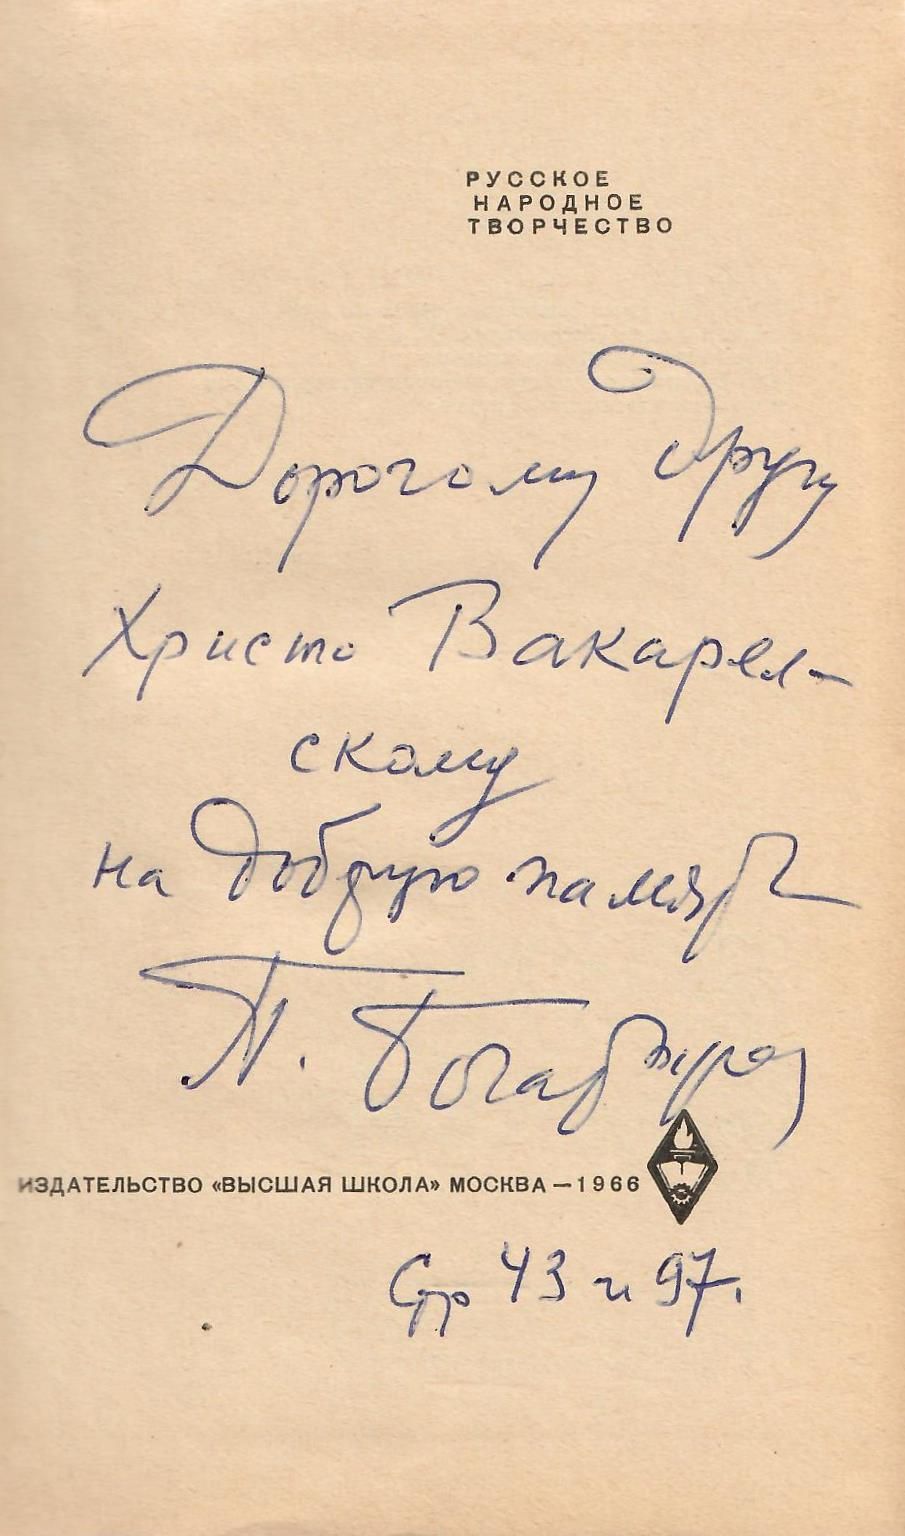 РУССКОЕ
НАРОДНОЕ
ТВОРЧЕСТВО
Дорогому Другу
Христо Вакарел-
скому
на добрую память
П. Богатырев
ИЗДАТЕЛЬСТВО «ВЫСШАЯ ШКОЛА» МОСКВА — 1966
Стр 43 и 97.